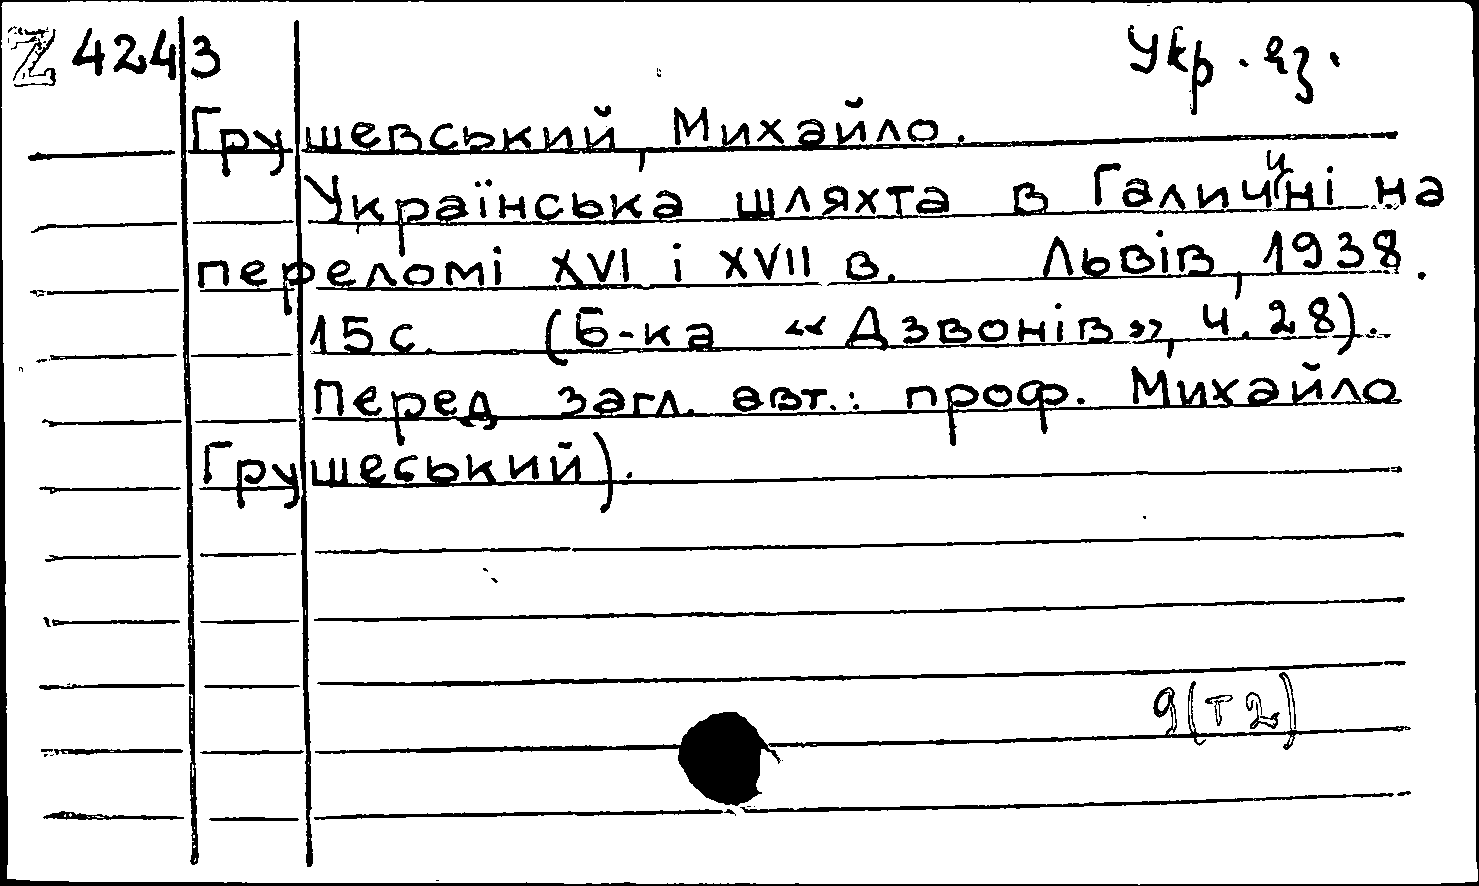 Z 4243 Укр. яз.
Грушевський, Михайло.
Українська шляхта в Галичині на
переломі XVI і XVII в. Львів, 1938.
15 с. (Б-ка «Дзвонів», ч. 28).
Перед загл. авт.: проф. Михайло
Грушеський).
9(Т2)